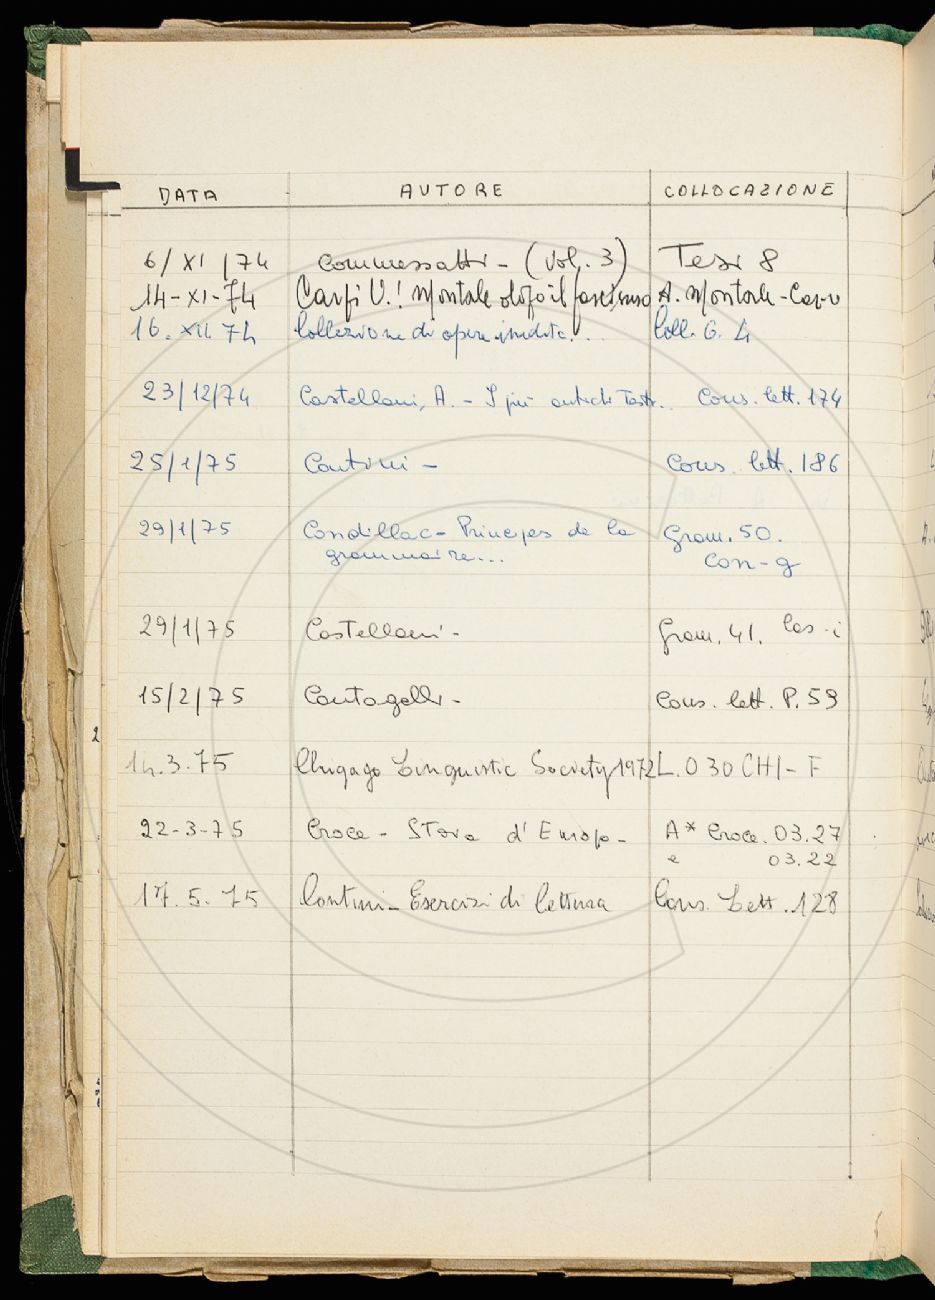 DATA AUTORE COLLOCAZIONE
6/XI/74 Commessatti - (Vol. 3) Tesi 8
14-XI-74 Carpi U.! Montale dopo il fascismo A. Montale-Car-u
16. XII. 74 Collezione di opere inedite... Coll. G. 4
23/12/74 Castellani, A. - I più antichi Testi.. Cons. lett. 174
25/1/75 Contini - Cons. lett. 186
29/1/75 Condillac - Principes de la Gram. 50.
grammaire... Con-g
29/1/75 Castellani - Gram. 41. Cas-i
15/2/75 Cantagalli - Cons. lett. P. 59
2
14.3.75 Chigago Linguistic Society 1972 L. 030 CHI - F
22-3-75 Croce - Storia d'Europa - A* Croce. 03.27
e 03.22
17. 5. 75 Contini - Esercizi di lettura Cons. Lett. 128